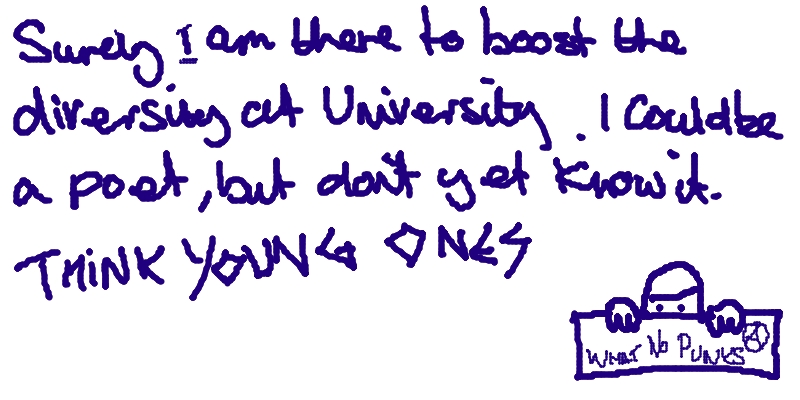 Surely I am there to boost the
diversity at University. I could be
a poet, but don't yet know it.
THINK YOUNG ONES
WHAT NO PUNKS